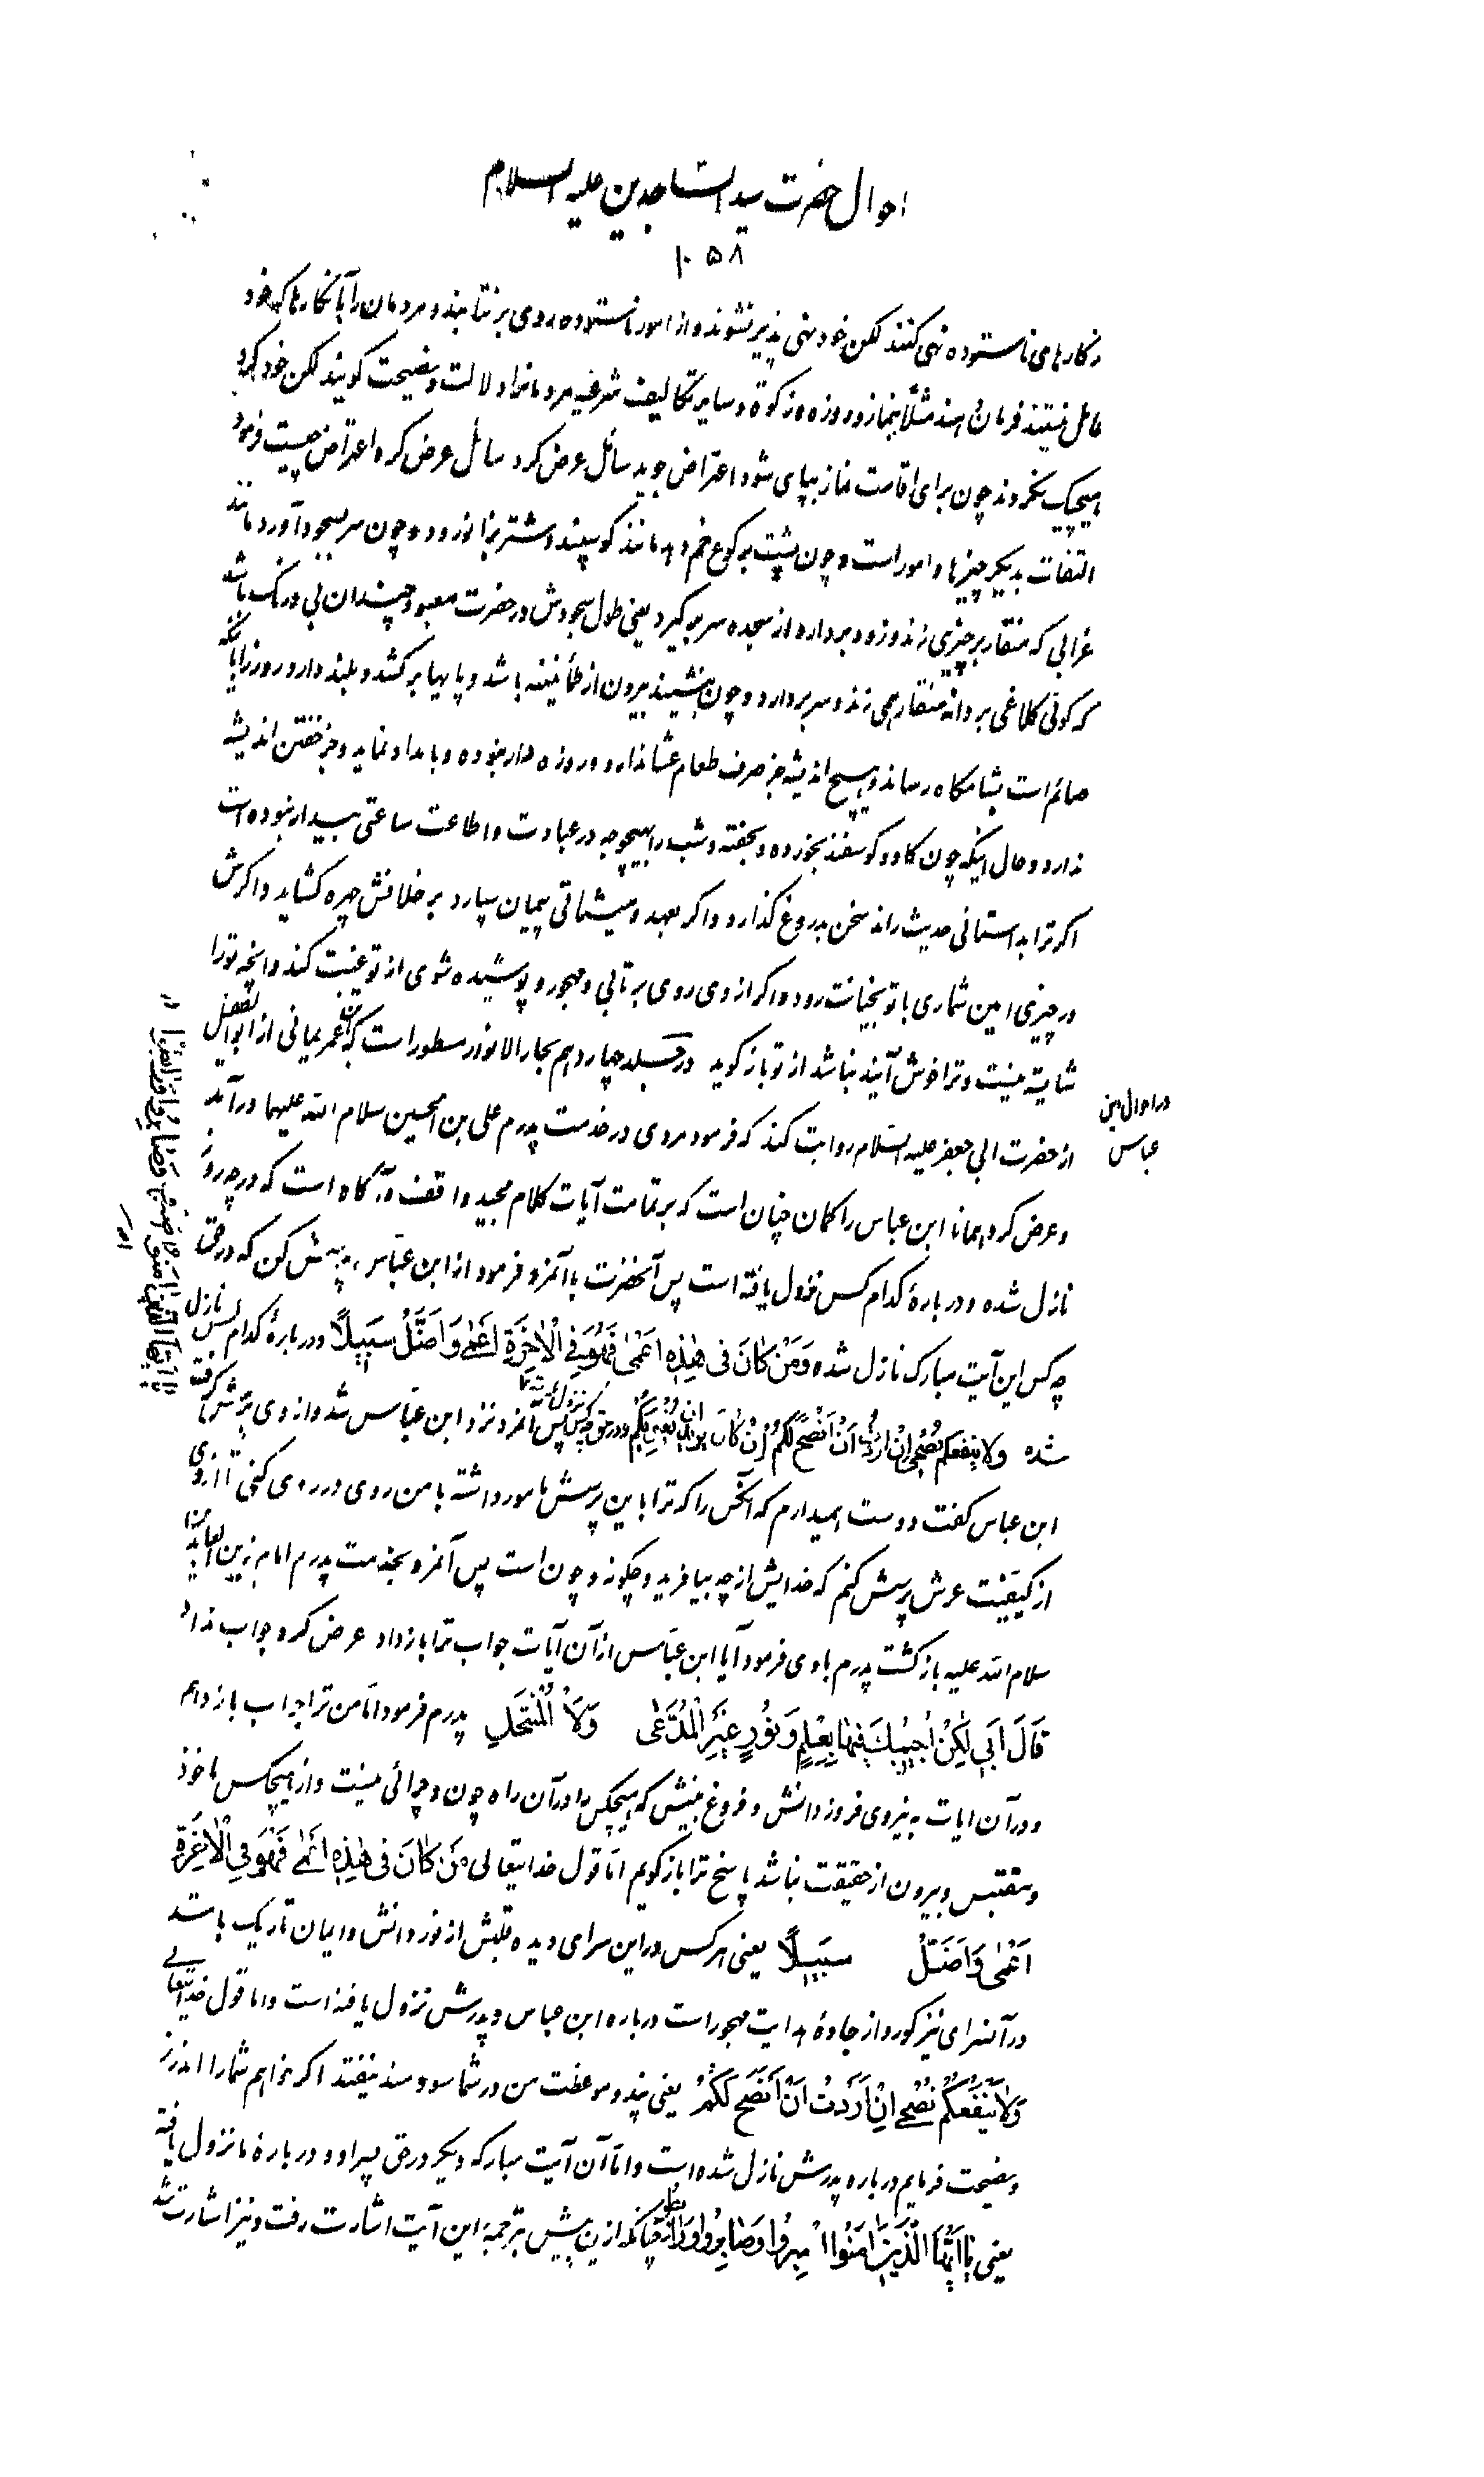 احوال حضرت سید الساجدین علیه السلام
۱۰۵۸
زکارهای ناستوده نهی کنند لکن خود نهی پذیر نشوند و از امور ناستوده روی برنتابند و مردمان را بآنکارها که خود
عامل نیستند فرمان دهند مثلاً بنماز و روزه و زکوة و سایر تکالیف شرعیه مردمانرا دلالت و نصیحت کویند لکن خود کرد
هیچیک نکردند چون برای اقامت نماز بپای شود اعتراض جوید سائل عرض کرد سائل عرض کرد اعتراض چیست فرمود
التفات بدیکر چیزها و امور است و چون پشت برکوع خم دهد مانند کوسپند و شتر بزانو رود و چون سر بسجود آورد مانند
غرابی که منقار بر چیزی زند و زود بردارد از سجده سر برکیرد یعنی طول سجودش در حضرت معبود چندان بی درنک باشد
که کوئی کلاغی بر دانه منقار همی زند و سر بردارد و چون بنشیند بیرون از طمأنینه باشد و پایها برکشد و بلند دارد و روز را با اینکه
صائم است بشامکاه رساند و هیچ اندیشه جز صرف طعام عشا ندارد و روزه دار نبوده و بامداد نماید و جز خفتن اندیشه
ندارد و حال اینکه چون کاو و کوسفند بخورده و بخفته و شب را بهیچوجه در عبادت و اطاعت ساعتی بیدار نبوده است
اکر ترا بداستانی حدیث راند سخن بدروغ کذارد و اکر بعهد و میثاقی پیمان سپارد بر خلافش چهره کشاید و اکرش
در چیزی امین شماری با تو بخیانت رود و اکر از وی روی برتابی و مهجور و پوشیده شوی از تو غیبت کند و آنچه تو را
شایسته نیست و ترا خوش آیند نباشد از تو باز کوید در جلد چهاردهم بحار الانوار مسطور است که عمر یمانی از ابوالفضل
از حضرت ابی جعفر علیه السلام روایت کند که فرمود مردی در خدمت پدرم علی بن الحسین سلام الله علیهما درآمد
و عرض کرد همانا ابن عباس را کمان چنان است که بر تمامت آیات کلام مجید واقف و آکاه است که در چه روز
نازل شده و درباره کدام کس نزول یافته است پس آنحضرت با آنمرد فرمود از ابن عباس پرسش کن که در حق
چه کس این آیت مبارک نازل شده وَمَنْ کانَ فی هٰذِهِ اَعْمٰی فَهُوَ فِی الْاٰخِرَةِ اَعْمٰی وَاَضَلُّ سَبیلاً و درباره کدام کس نازل
شده ولا ینفعکم نُصْحی اِنْ اَرَدْتُ اَنْ اَنْصَحَ لَکُمْ اِنْ کانَ یرید ان یُغْوِیَکُمْ و در حق چه کس پس آنمرد نزد ابن عباس شد و از وی پرسش کرفت
ابن عباس کفت دوست همیدارم که آنکس را که ترا باین پرسش مامور داشته با من روی در روی کنی تا از وی
از کیفیت عرش پرسش کنم که خدایش از چه بیافرید و چکونه و چون است پس آنمرد بخدمت پدرم امام زین العابدین
سلام الله علیه بازکشت پدرم با وی فرمود آیا ابن عباس از آن آیات جواب ترا باز داد عرض کرد جواب نداد
قالَ اَبی لٰکِنْ اُجیبُکَ فیها بِعِلْمٍ وَنُورٍ غَیْرِ الْمُدَّعٰی وَلاَ الْمُنْتَحَلِ پدرم فرمود اما من ترا جواب باز دهم
و در آن ایات به نیروی فروز دانش و فروغ بینش که هیچکس را در آن راه چون و چرائی نیست و از هیچکس ماخوذ
و مقتبس و بیرون از حقیقت نباشد پاسخ ترا باز کویم اما قول خدایتعالی مَنْ کانَ فی هٰذِهِ اَعْمٰی فَهُوَ فِی الْاٰخِرَةِ
اَعْمٰی وَاَضَلُّ سَبیلاً یعنی هر کس در این سرای دیده قلبش از نور دانش و ایمان تاریک باشد
در آنسرای نیز کور و از جادهٔ هدایت مهجور است درباره ابن عباس و پدرش نزول یافته است و اما قول خدایتعالی
وَلاٰ یَنْفَعُکُمْ نُصْحی اِنْ اَرَدْتُ اَنْ اَنْصَحَ لَکُمْ یعنی پند و موعظت من در شما سودمند نیفتد اکر خواهم شما را اندرز
و نصیحت فرمایم درباره پدرش نازل شده است و اما آن آیت مبارکه دیکر در حق پسر او و درباره ما نزول یافته
یعنی یا اَیُّهَا الَّذینَ اٰمَنُوا اصْبِرُوا وَصابِرُوا وَرابِطُوا چنانکه ازین پیش بترجمهٔ این آیت اشارت رفت و نیز اشارت شد
در احوال ابن
عباس
یا اَیُّهَا الَّذینَ اٰمَنُوا اصبروا وَصابِرُوا وَرابِطُوا